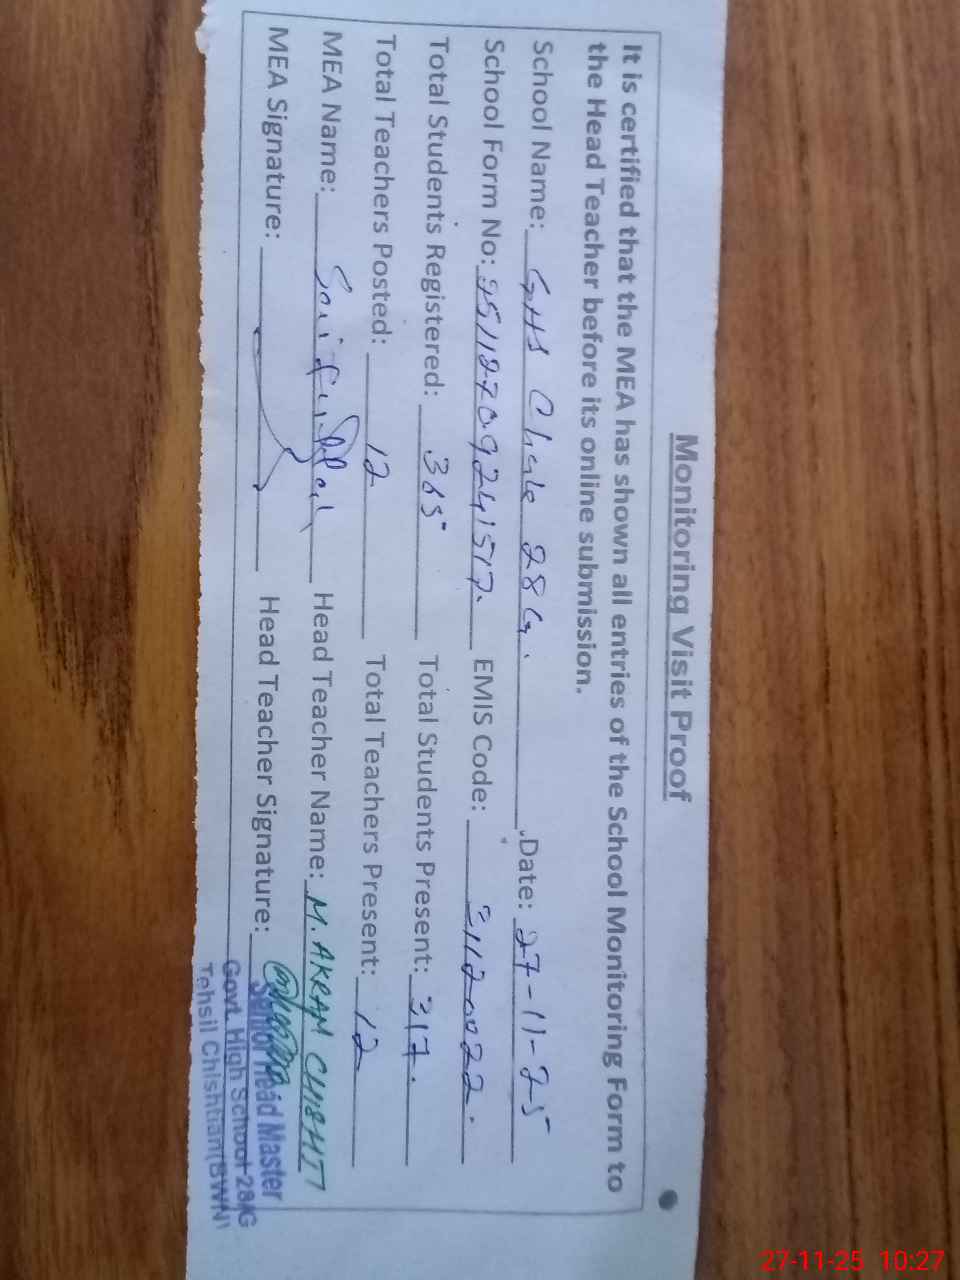 Monitoring Visit Proof
It is certified that the MEA has shown all entries of the School Monitoring Form to
the Head Teacher before its online submission.
School Name: GHS Chak 28 G. Date: 27-11-25
School Form No: EMIS Code: 31120022.
Total Students Registered: 365 Total Students Present: 317.
Total Teachers Posted: 12 Total Teachers Present: 12
MEA Name: Head Teacher Name: M. AKRAM CHISHTI
MEA Signature: Head Teacher Signature:
Senior Head Master
Govt. High School 28/G
Tehsil Chishtian (BWN)
27-11-25 10:27